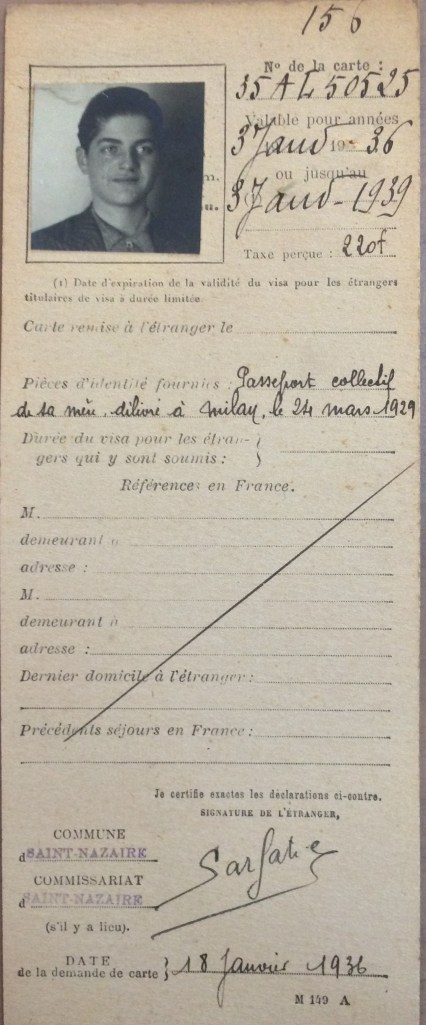 156
N° de la carte :
35 AL 50525
Valable pour années
3 Janv 1936
ou jusqu'au
3 Janv - 1939
Taxe perçue : 220f
(1) Date d'expiration de la validité du visa pour les étrangers
titulaires de visa à durée limitée
Carte remise à l'étranger le
Pièces d'identité fournies : Passeport collectif
de sa mère, délivré à Milan, le 24 mars 1929
Durée du visa pour les étran-
gers qui y sont soumis :
Références en France.
M.
demeurant à
adresse :
M.
demeurant à
adresse :
Dernier domicile à l'étranger :
Précédents séjours en France :
Je certifie exactes les déclarations ci-contre.
SIGNATURE DE L'ÉTRANGER,
COMMUNE
d SAINT-NAZAIRE
COMMISSARIAT
d SAINT-NAZAIRE
(s'il y a lieu).
DATE
de la demande de carte } 18 Janvier 1936
M 149 A